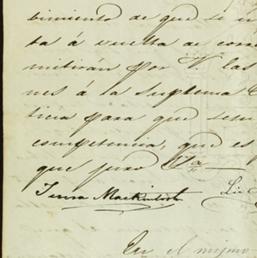 bimiento de que se
ta á vuelta de
mitirán por V. las
nes á la suprema
ticia para que
competencia, que es
que juró
Mackintosh
En el mismo